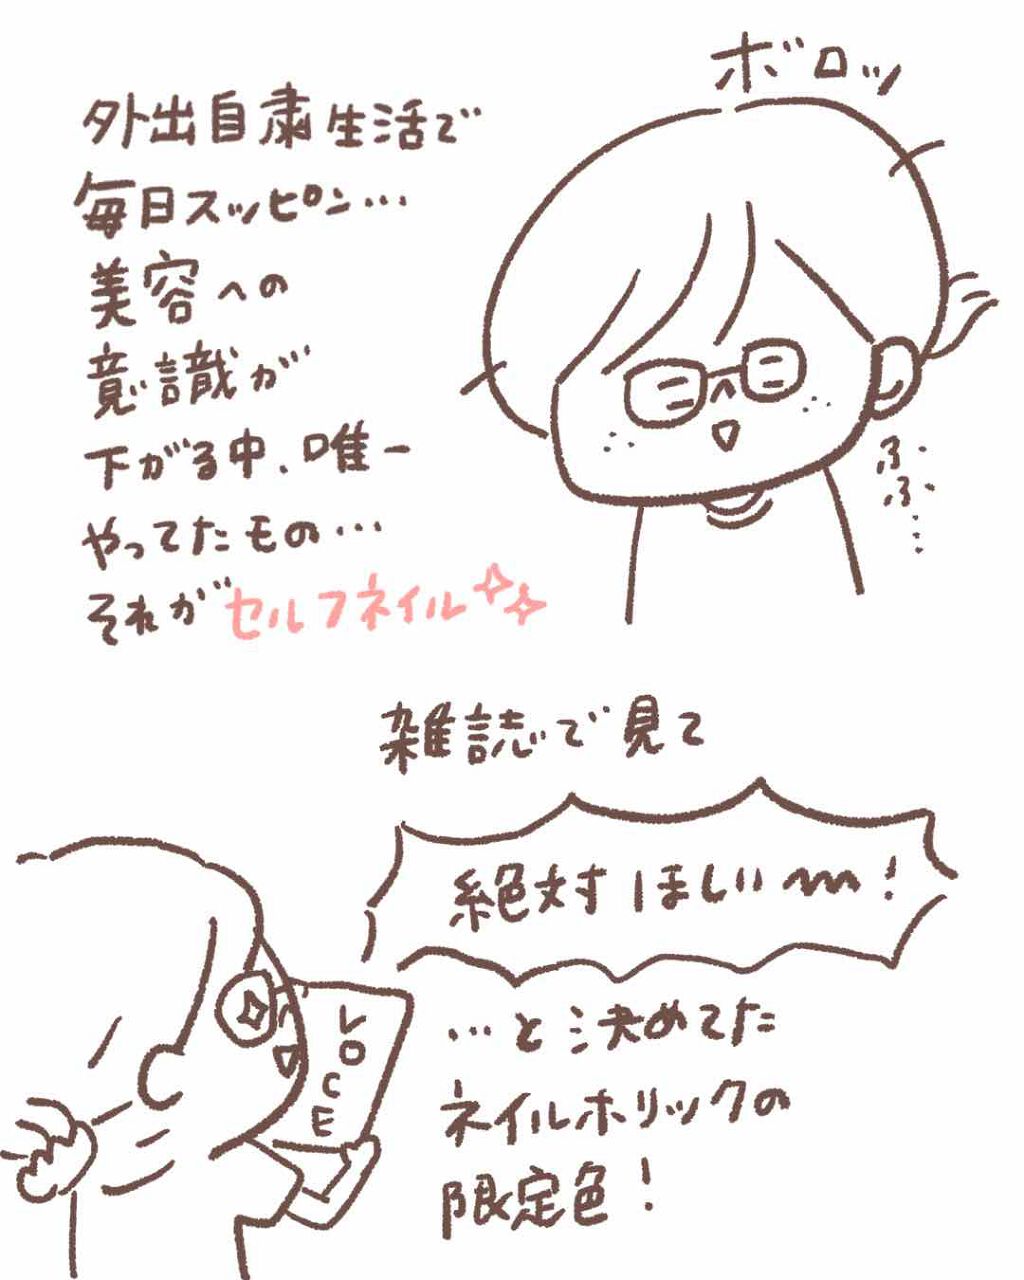 ボロッ
外出自粛生活で
毎日スッピン…
美容への
意識が
下がる中、唯一
やってたもの…
それがセルフネイル
ふふ…
雑誌で見て
絶対ほしい〰!
LOCE
…と決めてた
ネイルホリックの
限定色!